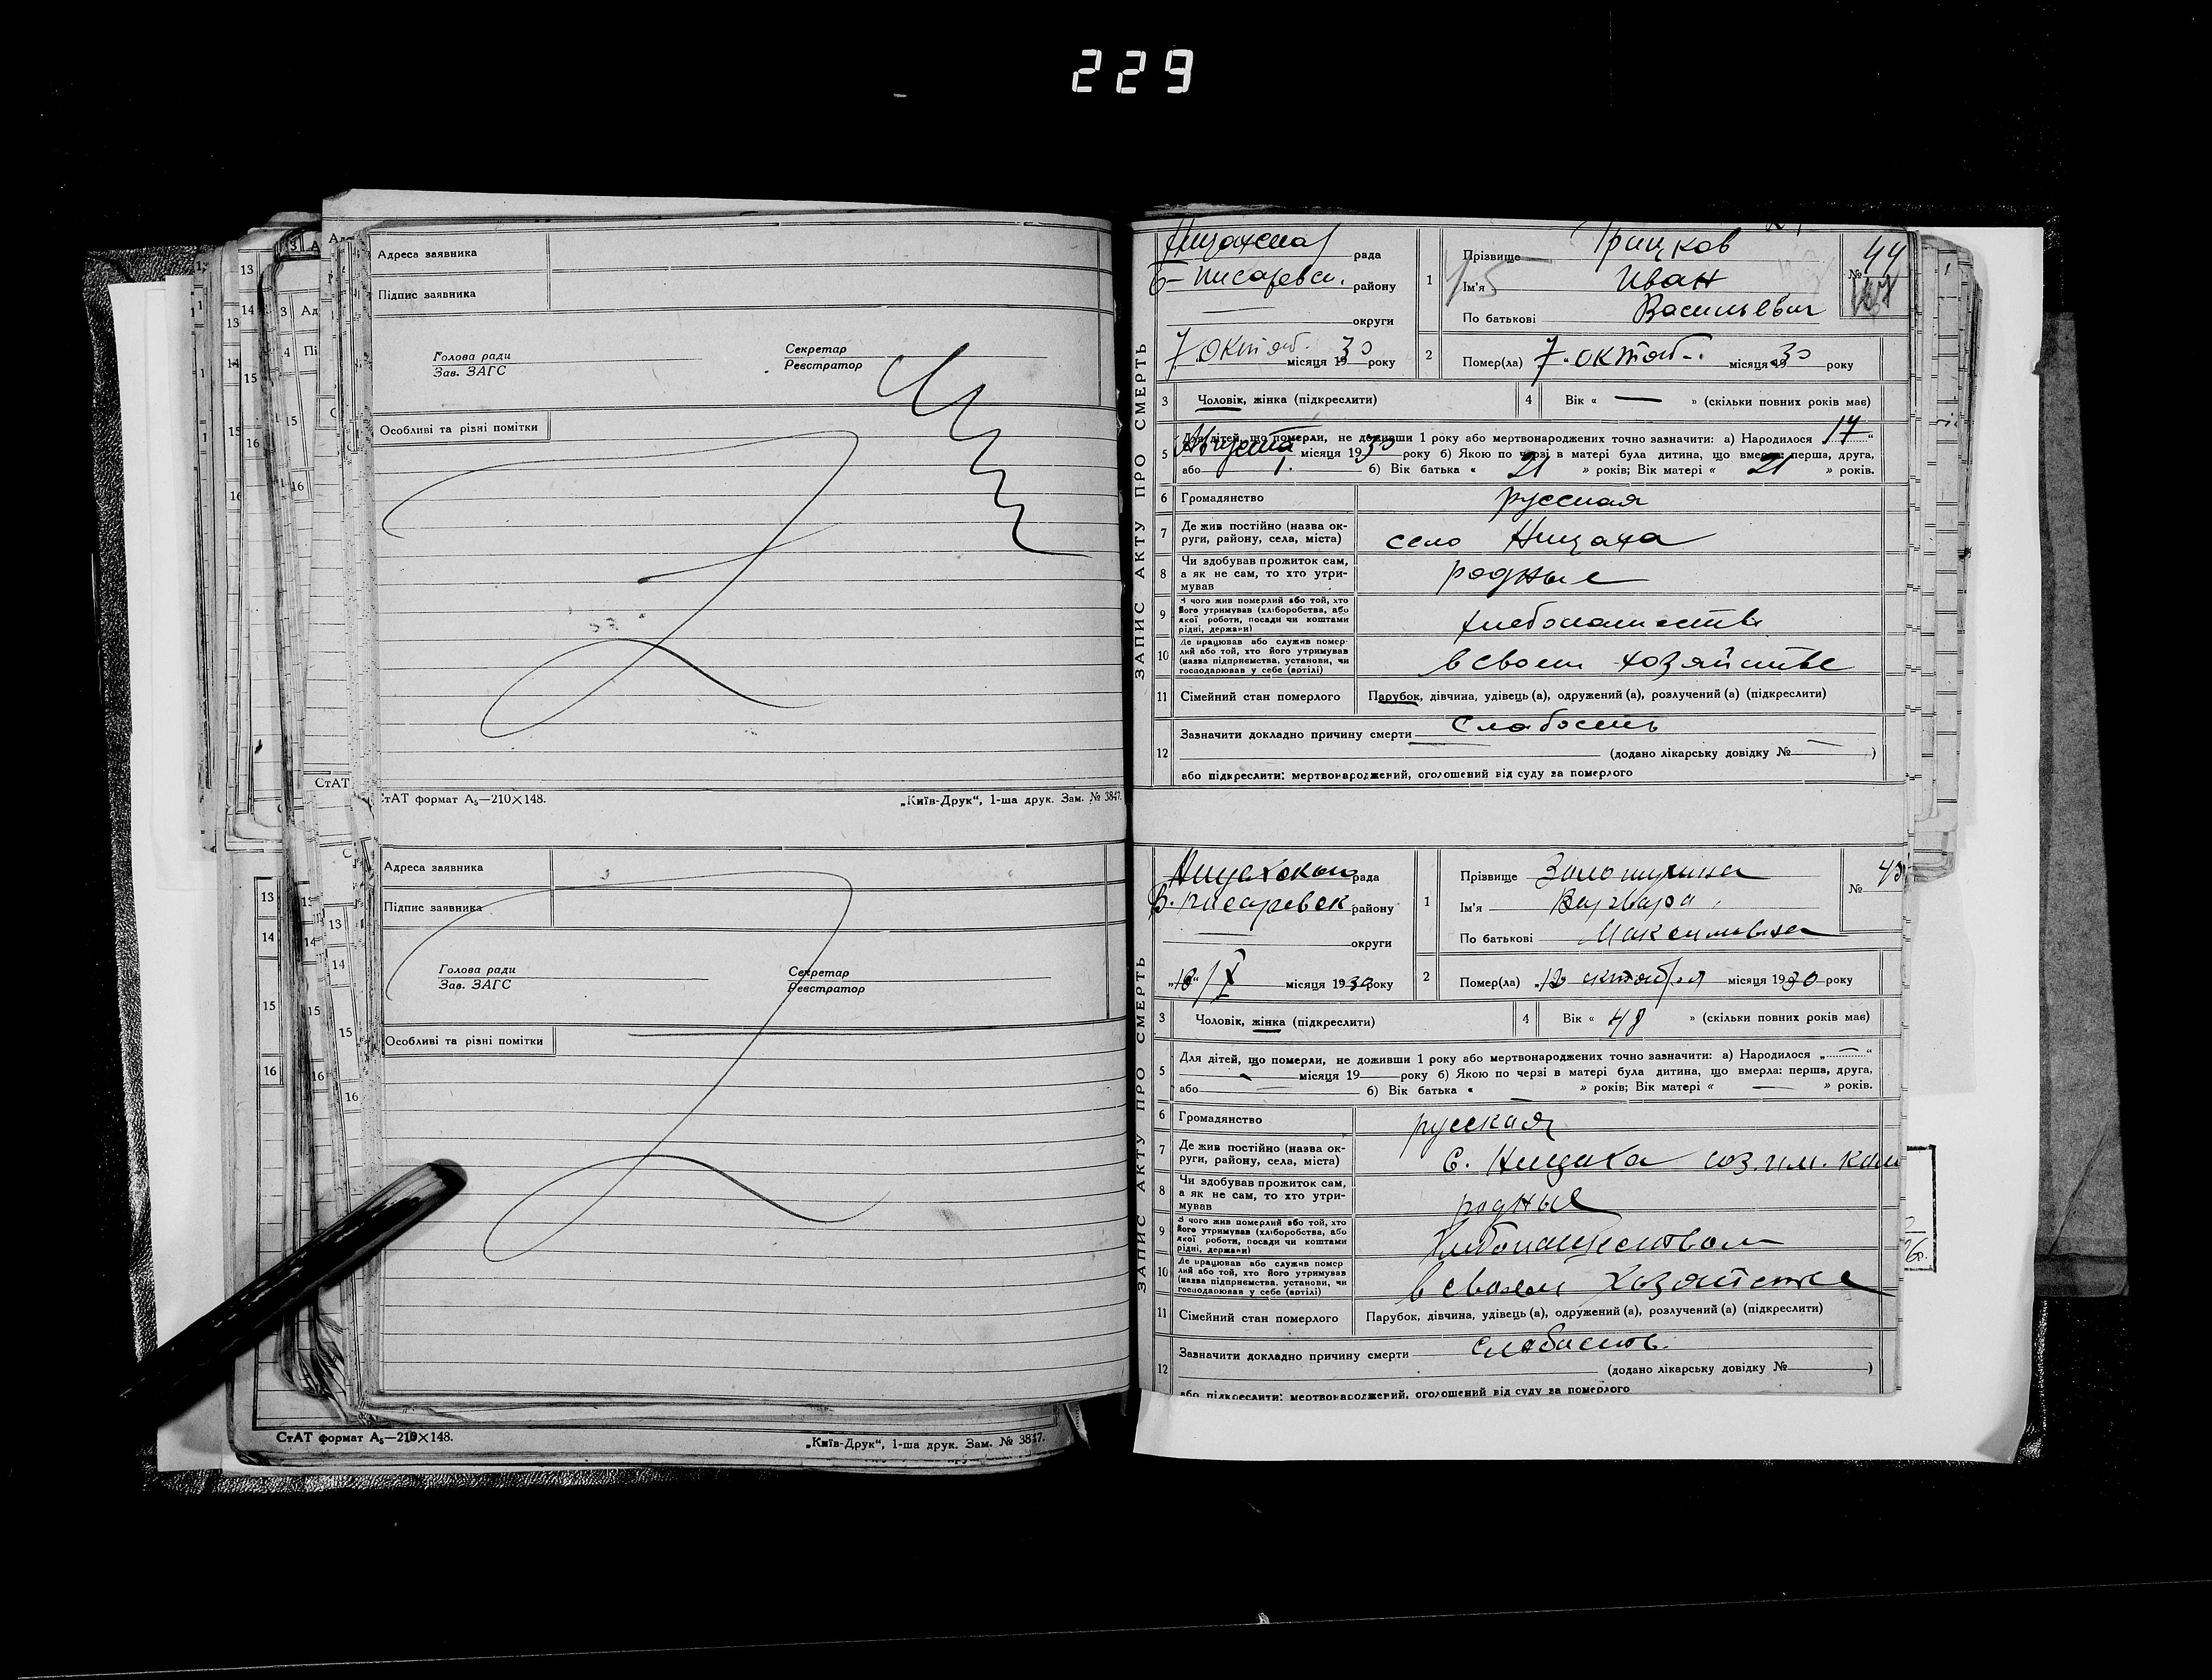 229
Адреса заявника
Підпис заявника
Голова ради
Зав. ЗАГС
Секретар
Реєстратор
Особливі та різні помітки
СтАТ формат А₅—210×148.
„Київ-Друк“, 1-ша друк. Зам. № 3847.
Адреса заявника
Підпис заявника
Голова ради
Зав. ЗАГС
Секретар
Реєстратор
Особливі та різні помітки
СтАТ формат А₅—210×148.
„Київ-Друк“, 1-ша друк. Зам. № 3847.
ЗАПИС АКТУ ПРО СМЕРТЬ
рада
Б-Писаревск. району
округи
7 октяб. місяця 1930 року
1 Прізвище Грицков
Ім'я Иван
По батькові Васильевич
№ 44
2 Помер(ла) 7 октяб. місяця 1930 року
3 Чоловік, жінка (підкреслити)
4 Вік « — » (скільки повних років має)
5 Для дітей, що померли, не доживши 1 року або мертвонароджених точно зазначити: а) Народилося 17 “
Августа місяця 1930 року б) Якою по черзі в матері була дитина, що вмерла: перша, друга,
або 1. б) Вік батька « 21 » років; Вік матері « 21 » років.
6 Громадянство русская
7 Де жив постійно (назва округи, району, села, міста) село Ницаха
8 Чи здобував прожиток сам, а як не сам, то хто утримував родные
9 З чого жив померлий або той, хто його утримував (хліборобства, або якої роботи, посади чи коштами рідні, держави) хлебопашества
10 Де працював або служив померлий або той, хто його утримував (назва підприємства, установи, чи господарював у себе (артілі) в своем хозяйстве
11 Сімейний стан померлого Парубок, дівчина, удівець (а), одружений (а), розлучений (а) (підкреслити)
12 Зазначити докладно причину смерти слабость
(додано лікарську довідку № — )
або підкреслити: мертвонароджений, оголошений від суду за померлого
ЗАПИС АКТУ ПРО СМЕРТЬ
рада
Б. Писаревск району
округи
місяця 1930 року
1 Прізвище Золотухина
Ім'я Варвара
По батькові Максимовна
№ 45
2 Помер(ла) октября місяця 1930 року
3 Чоловік, жінка (підкреслити)
4 Вік « 48 » (скільки повних років має)
5 Для дітей, що померли, не доживши 1 року або мертвонароджених точно зазначити: а) Народилося „ — “
місяця 19 року б) Якою по черзі в матері була дитина, що вмерла: перша, друга,
або — б) Вік батька « » років; Вік матері « — » років.
6 Громадянство русская
7 Де жив постійно (назва округи, району, села, міста) с. Ницаха
8 Чи здобував прожиток сам, а як не сам, то хто утримував родные
9 З чого жив померлий або той, хто його утримував (хліборобства, або якої роботи, посади чи коштами рідні, держави) Хлебопашеством
10 Де працював або служив померлий або той, хто його утримував (назва підприємства, установи, чи господарював у себе (артілі) в своем хозяйстве
11 Сімейний стан померлого Парубок, дівчина, удівець (а), одружений (а), розлучений (а) (підкреслити)
12 Зазначити докладно причину смерти слабость.
(додано лікарську довідку № )
або підкреслити: мертвонароджений, оголошений від суду за померлого